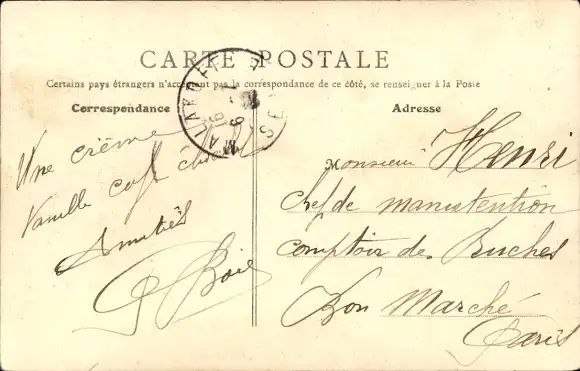 CARTE POSTALE
Certains pays étrangers n'acceptent pas la correspondance de ce côté, se renseigner à la Poste
Correspondance
Adresse
MALAKOFF
SEINE
Une crème
Vanille café chocolat
Amitiés
Monsieur Henri
chef de manutention
comptoir des Ruches
Bon Marché
Paris